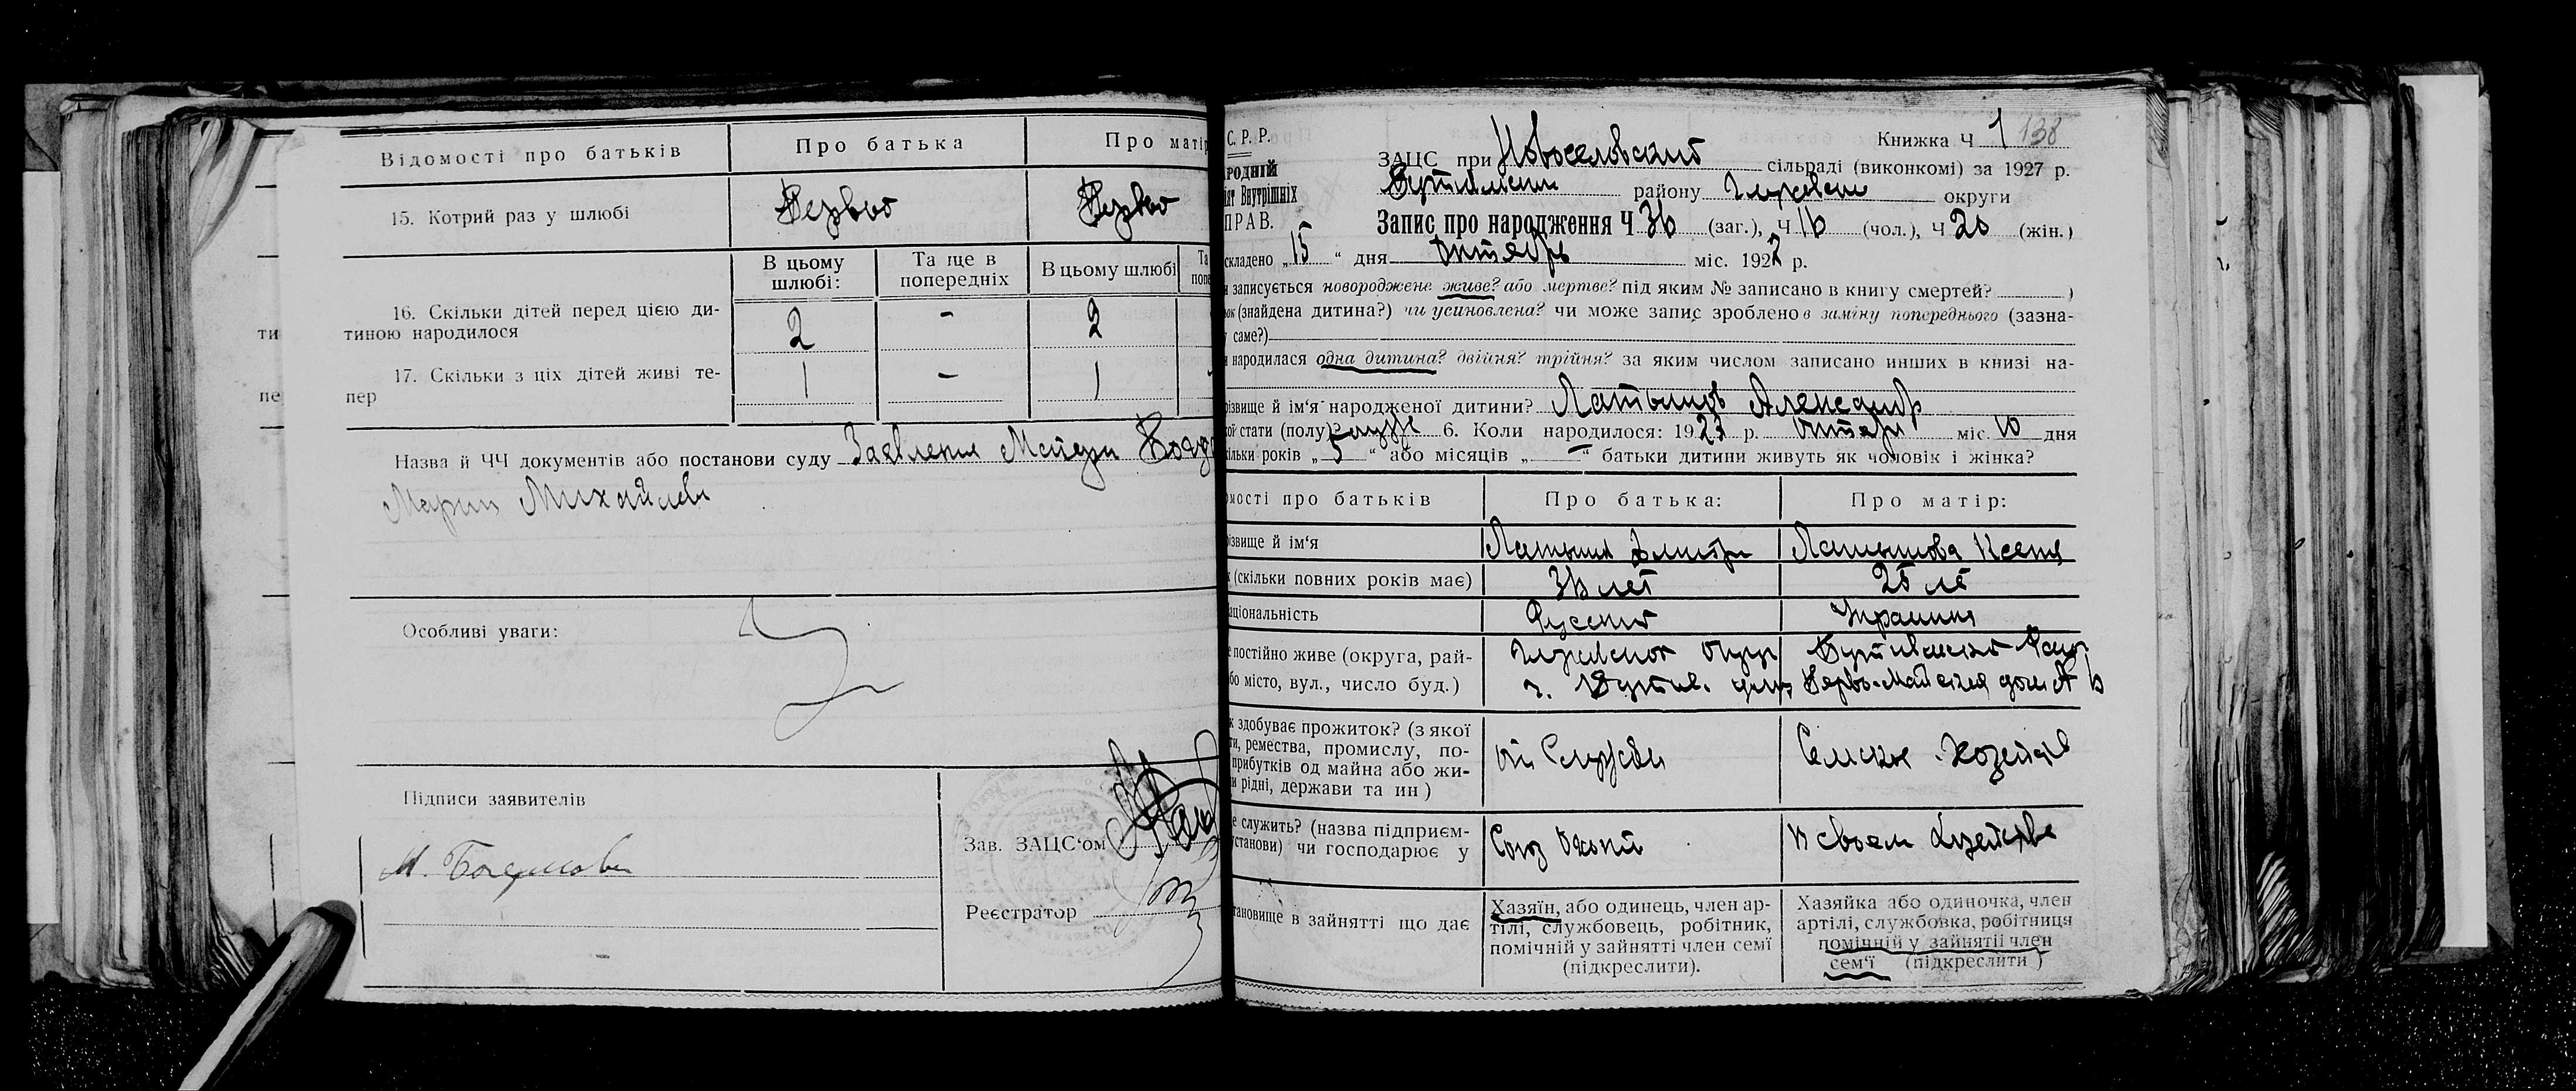 Відомості про батьків
Про батька
Про матір
15. Котрий раз у шлюбі
Первый
Первый
В цьому шлюбі:
Та ще в попередніх
В цьому шлюбі
Та
попе
16. Скільки дітей перед цією ди-
тиною народилося
2
-
2
17. Скільки з ціх дітей живі те-
пер
1
-
1
Назва й ЧЧ документів або постанови суду Заявления Матери
Марии Михайлов
Особливі уваги:
Підписи заявителів
Зав. ЗАЦС'ом
М.
Реєстратор
ти
пе
С. Р. Р.
РОДНІЙ
ят Внутрішніх
ПРАВ.
Книжка Ч 1 138
ЗАЦС при Новоселовский сільраді (виконкомі) за 1927 р.
району округи
Запис про народження Ч 36 (заг.), Ч 16 (чол.), Ч 20 (жін.)
складено „15“ дня Октябрь міс. 1927 р.
записується новороджене живе? або мертве? під яким № записано в книгу смертей? )
ок (знайдена дитина?) чи усиновлена? чи може запис зроблено в заміну попереднього (зазна-
саме?)
народилася одна дитина? двійня? трійня? за яким числом записано инших в книзі на-
різвище й ім'я народженої дитини? Латышов Александр
ої стати (полу)? муж 6. Коли народилося: 1927 р. Октябр міс. 10 дня
ільки років „5“ або місяців „-“ батьки дитини живуть як чоловік і жінка?
мості про батьків
Про батька:
Про матір:
різвище й ім'я
Латышов Дмитри
Латышова Ксения
(скільки повних років має)
36 лет
25 ле
аціональність
Русский
Украинка
е постійно живе (округа, рай-
бо місто, вул., число буд.)
Округ
Путивльского Район
г. Путив. улиц Перво-Майская дом №
к здобуває прожиток? (з якої
ти, ремества, промислу, по-
прибутків од майна або жи-
и рідні, держави та ин)
от Службы
Сельске Хозейств
е служить? (назва підприєм-
установи) чи господарює у
Союз Охоты
В своем Хозействе
тановище в зайнятті що дає
Хазяїн, або одинець, член ар-
тілі, службовець, робітник,
помічній у зайнятті член семї
(підкреслити).
Хазяйка або одиночка, член
артілі, службовка, робітниця
помічній у зайнятіі член
сем'ї (підкреслити)